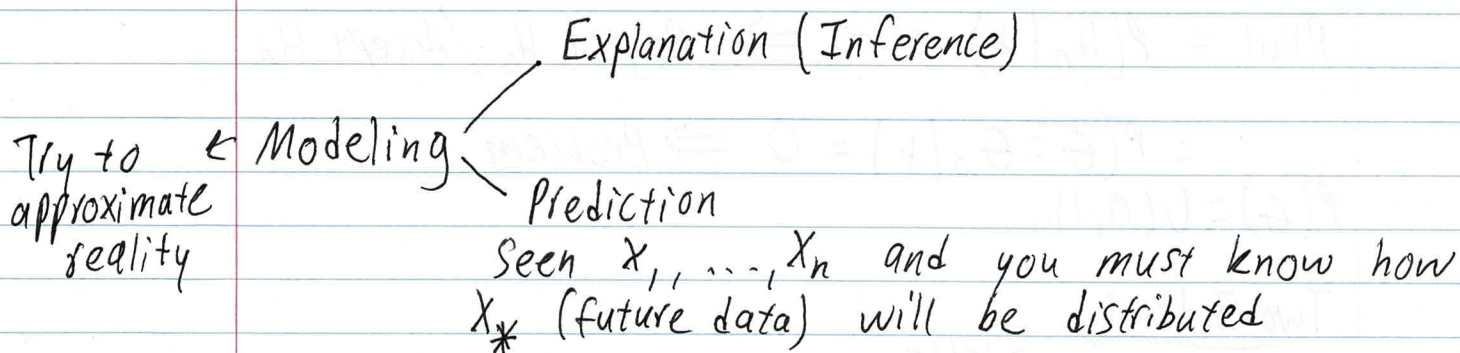 Explanation (Inference)
Try to ← Modeling
approximate
reality
Prediction
Seen X₁, ..., Xₙ and you must know how
X* (future data) will be distributed